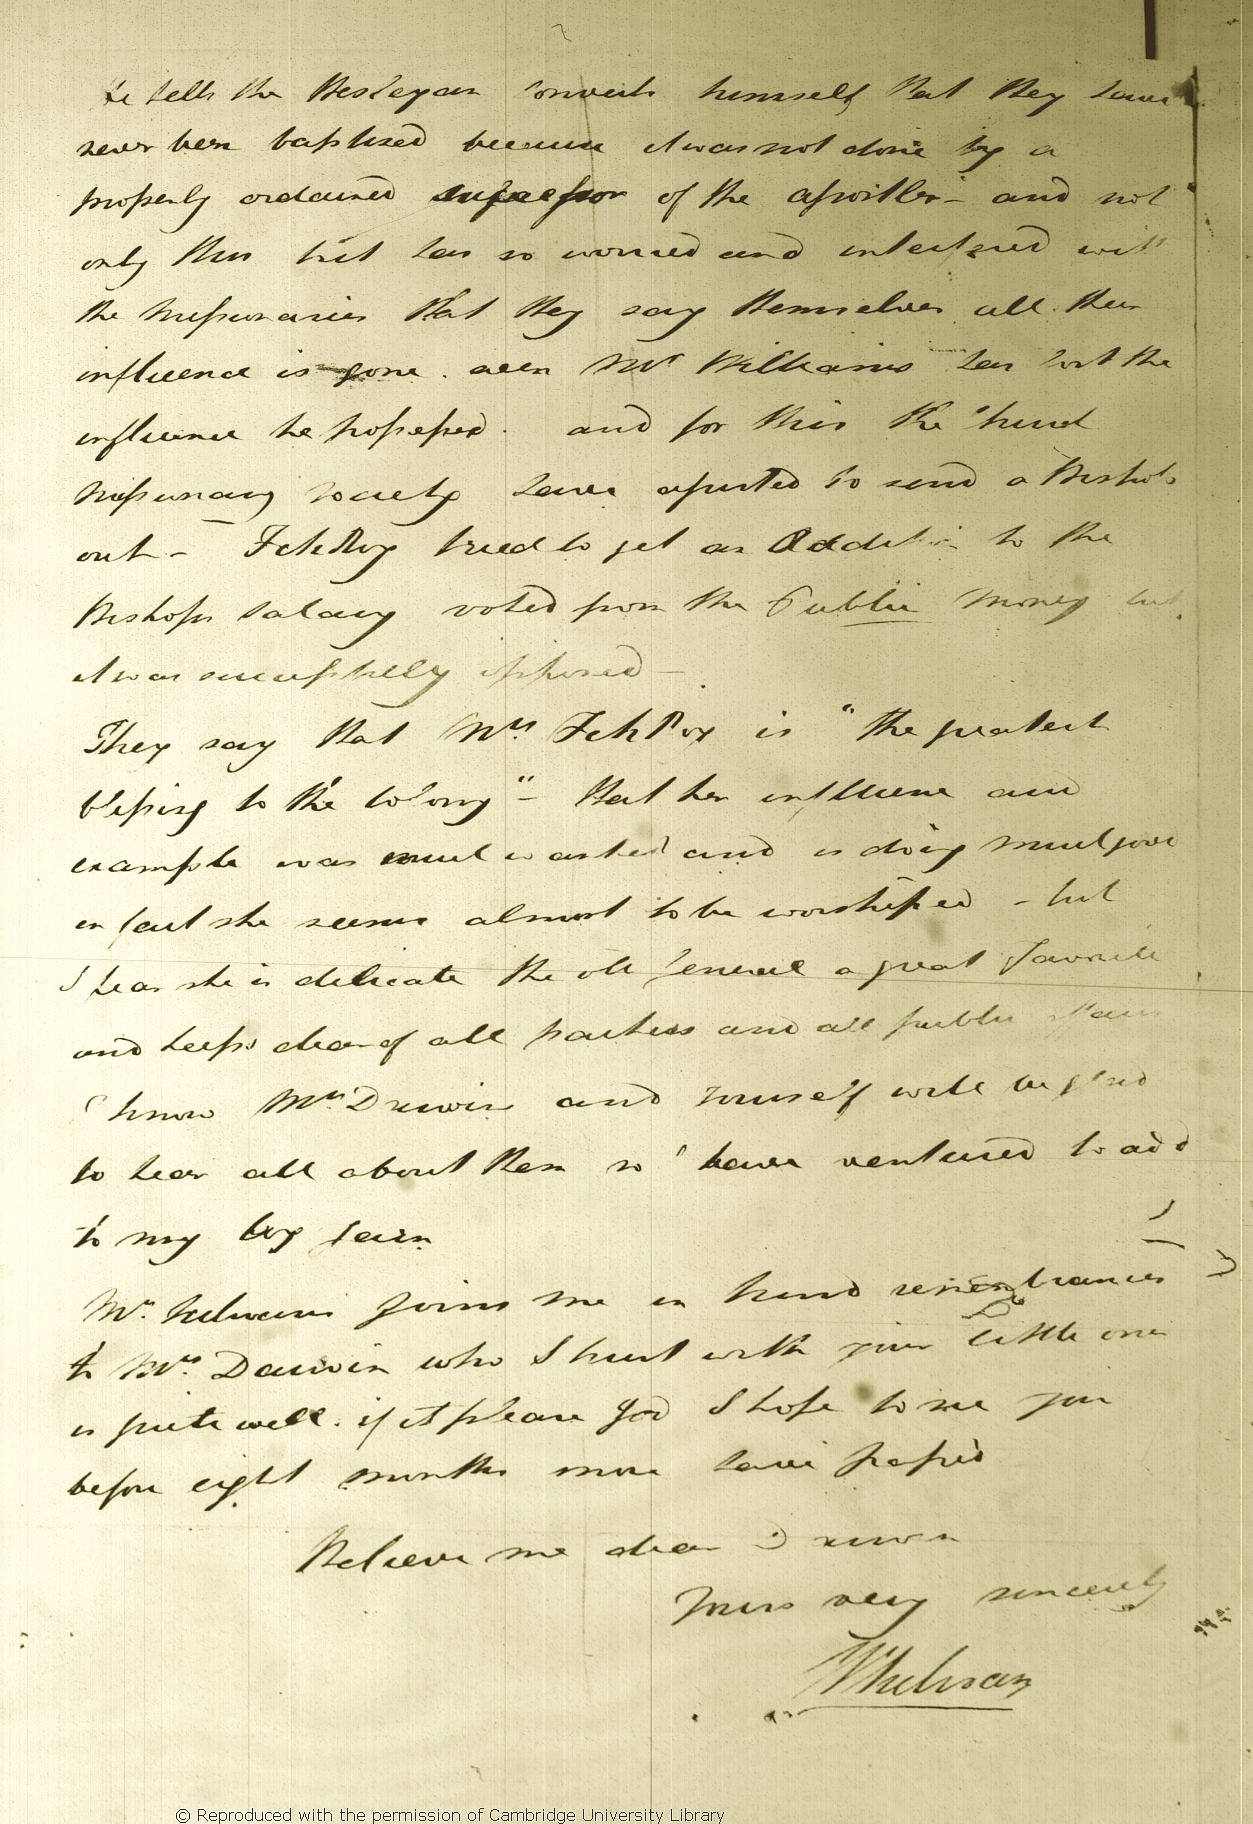 he tells the Wesleyan converts himself that they have
never been baptised because it was not done by a
properly ordained successor of the apostles — and not
only this but has so worried and interfered with
the Missionaries that they say themselves all their
influence is gone. even Mr Williams has lost the
influence he possessed. and for this the
Missionary Society have assisted to send a Bishop
out — FitzRoy tried to get an Addition to the
Bishops salary voted from the Public money but
it was successfully opposed —
They say that Mrs. FitzRoy is "the greatest
blessing to the Colony" — that her influence and
example was much wanted and is doing much good
in fact she seems almost to be worshipped — but
I hear she is delicate the old General a great favorite
and keeps clear of all parties and all public affairs
I know Mrs. Darwin and yourself will be glad
to hear all about them so I have ventured to add
to my long yarn
Mrs. Sulivan joins me in kind remembrances
to Mrs. Darwin who I trust with your little one
is quite well. if it please God I hope to see you
before eight months more have passed
Believe me dear Darwin
Yours very sincerely
Sulivan
© Reproduced with the permission of Cambridge University Library